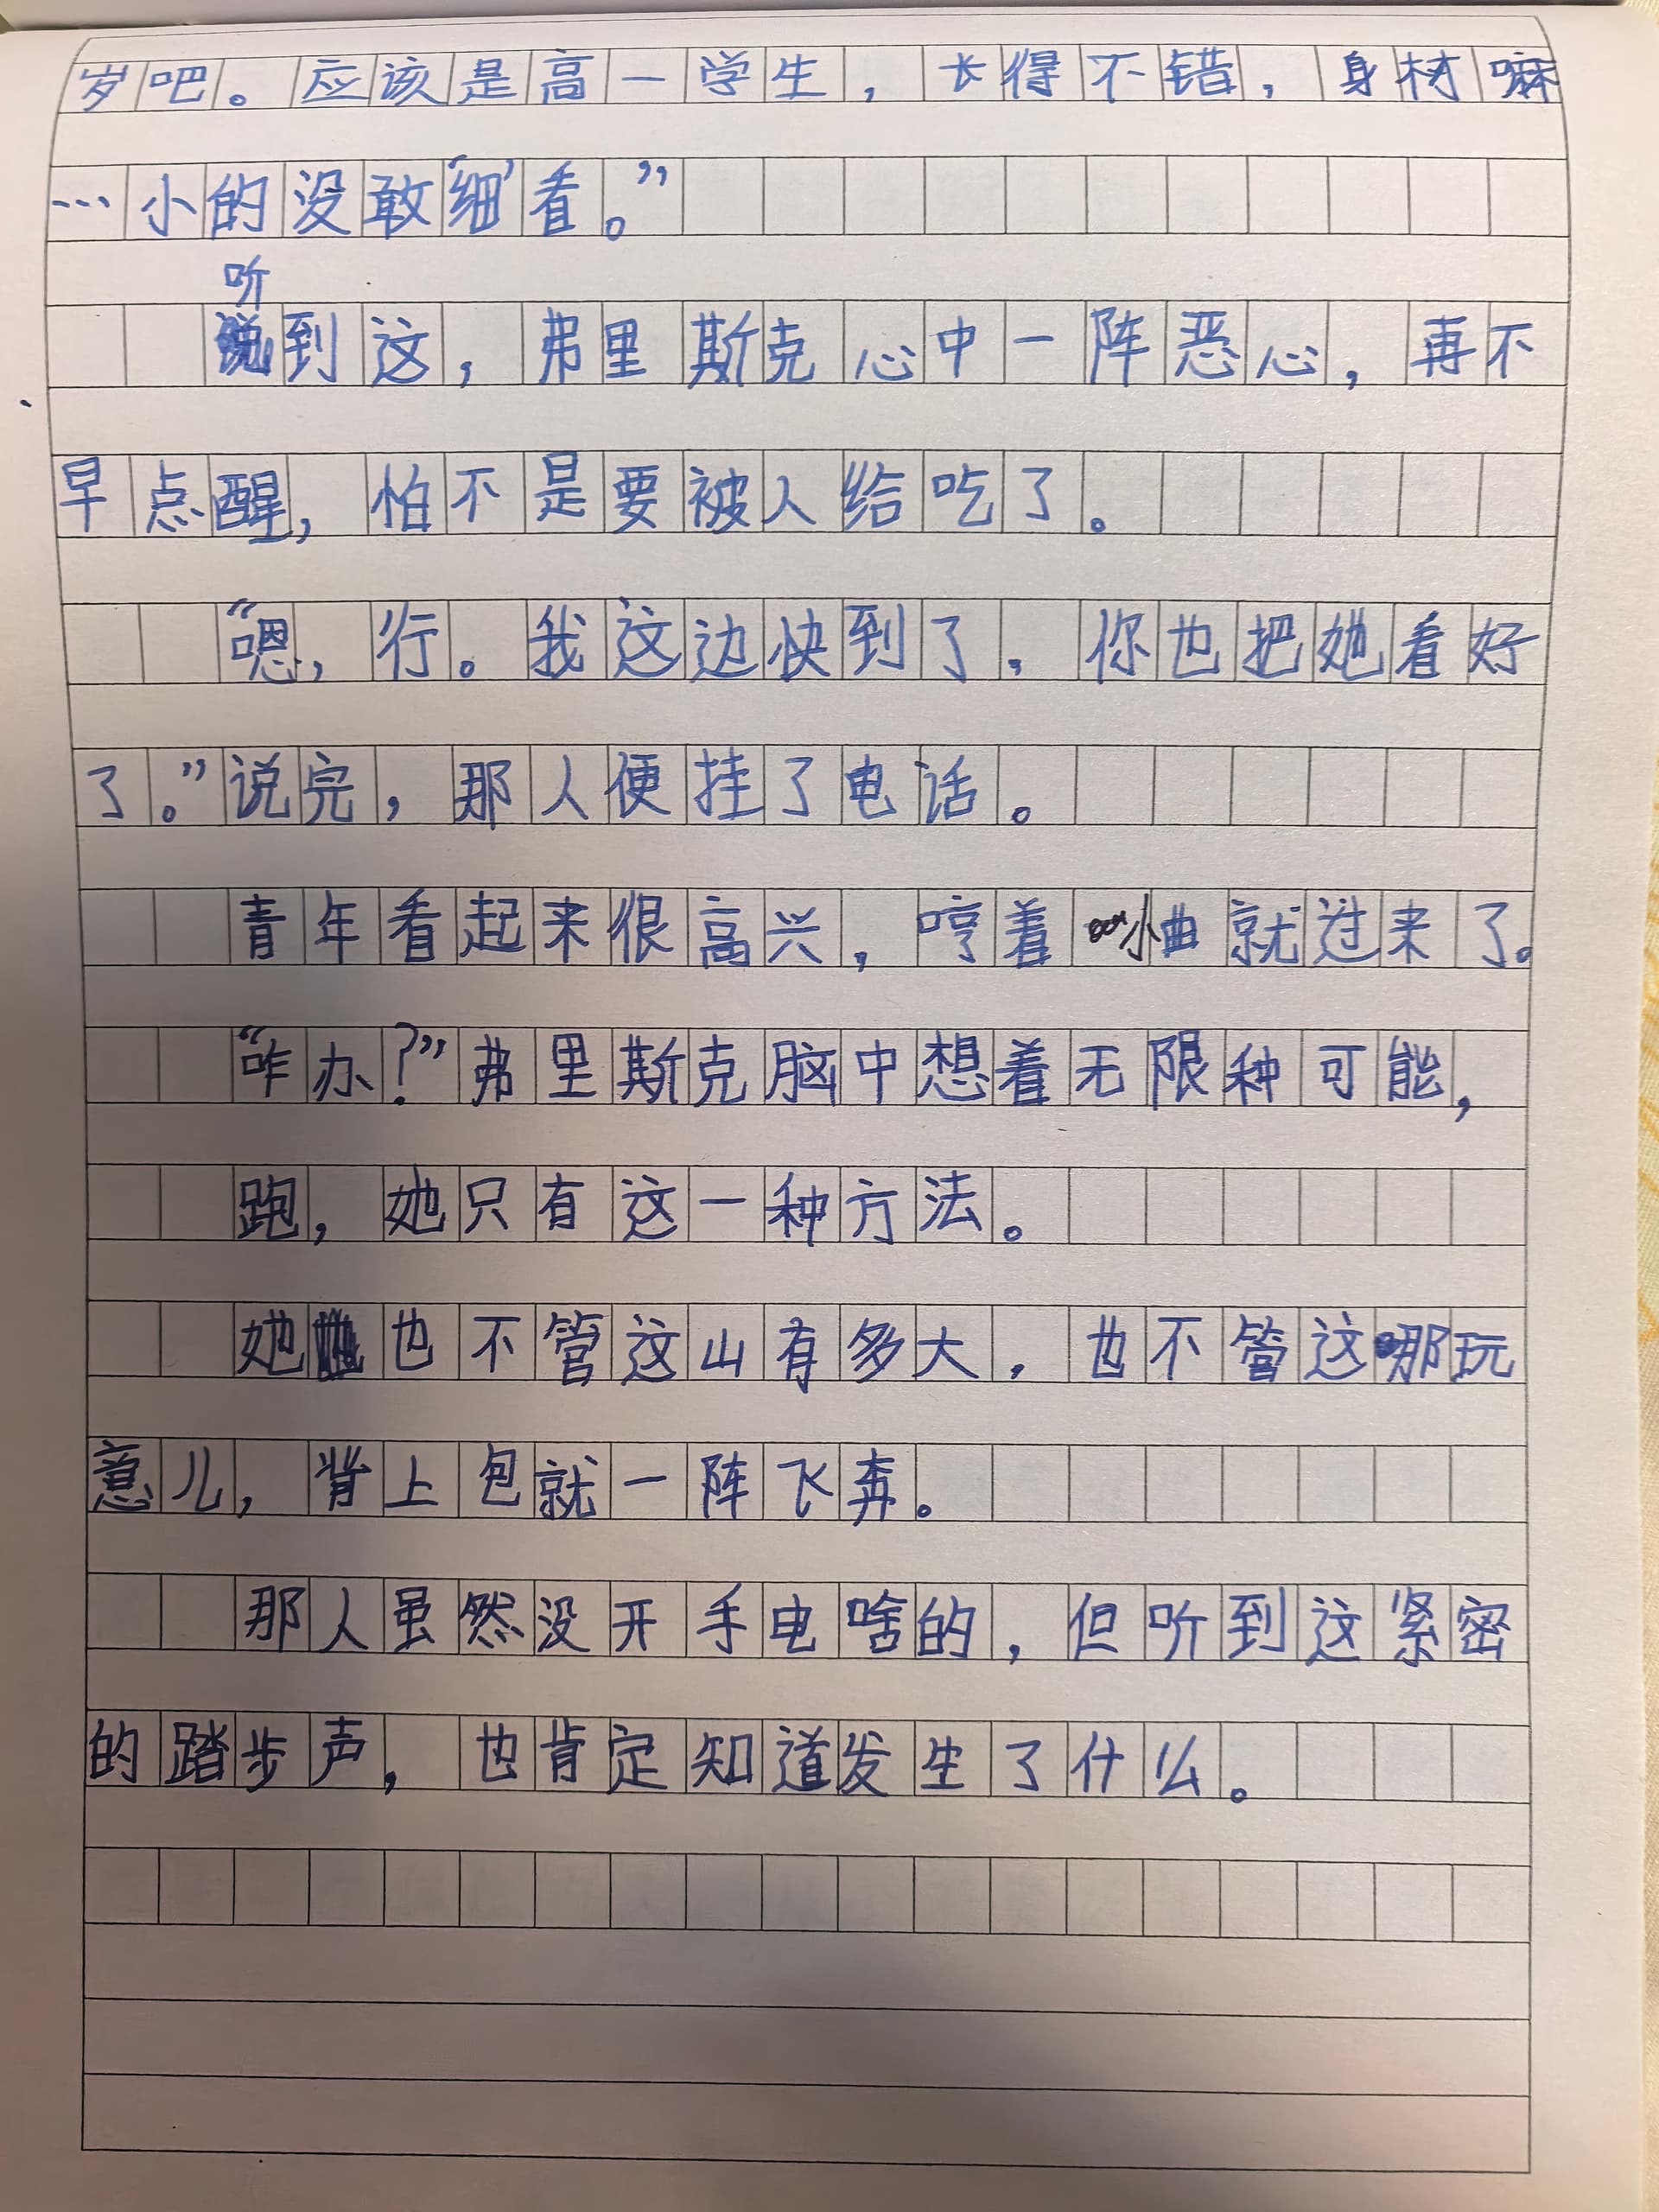 岁吧。应该是高一学生，长得不错，身材嘛
…小的没敢‘细’看。”
听
到这，弗里斯克心中一阵恶心，再不
早点醒，怕不是要被人给吃了。
“嗯，行。我这边快到了，你也把她看好
了。”说完，那人便挂了电话。
青年看起来很高兴，哼着小曲就过来了。
“咋办？”弗里斯克脑中想着无限种可能，
跑，她只有这一种方法。
她也不管这山有多大，也不管这哪玩
意儿，背上包就一阵飞奔。
那人虽然没开手电啥的，但听到这紧密
的踏步声，也肯定知道发生了什么。